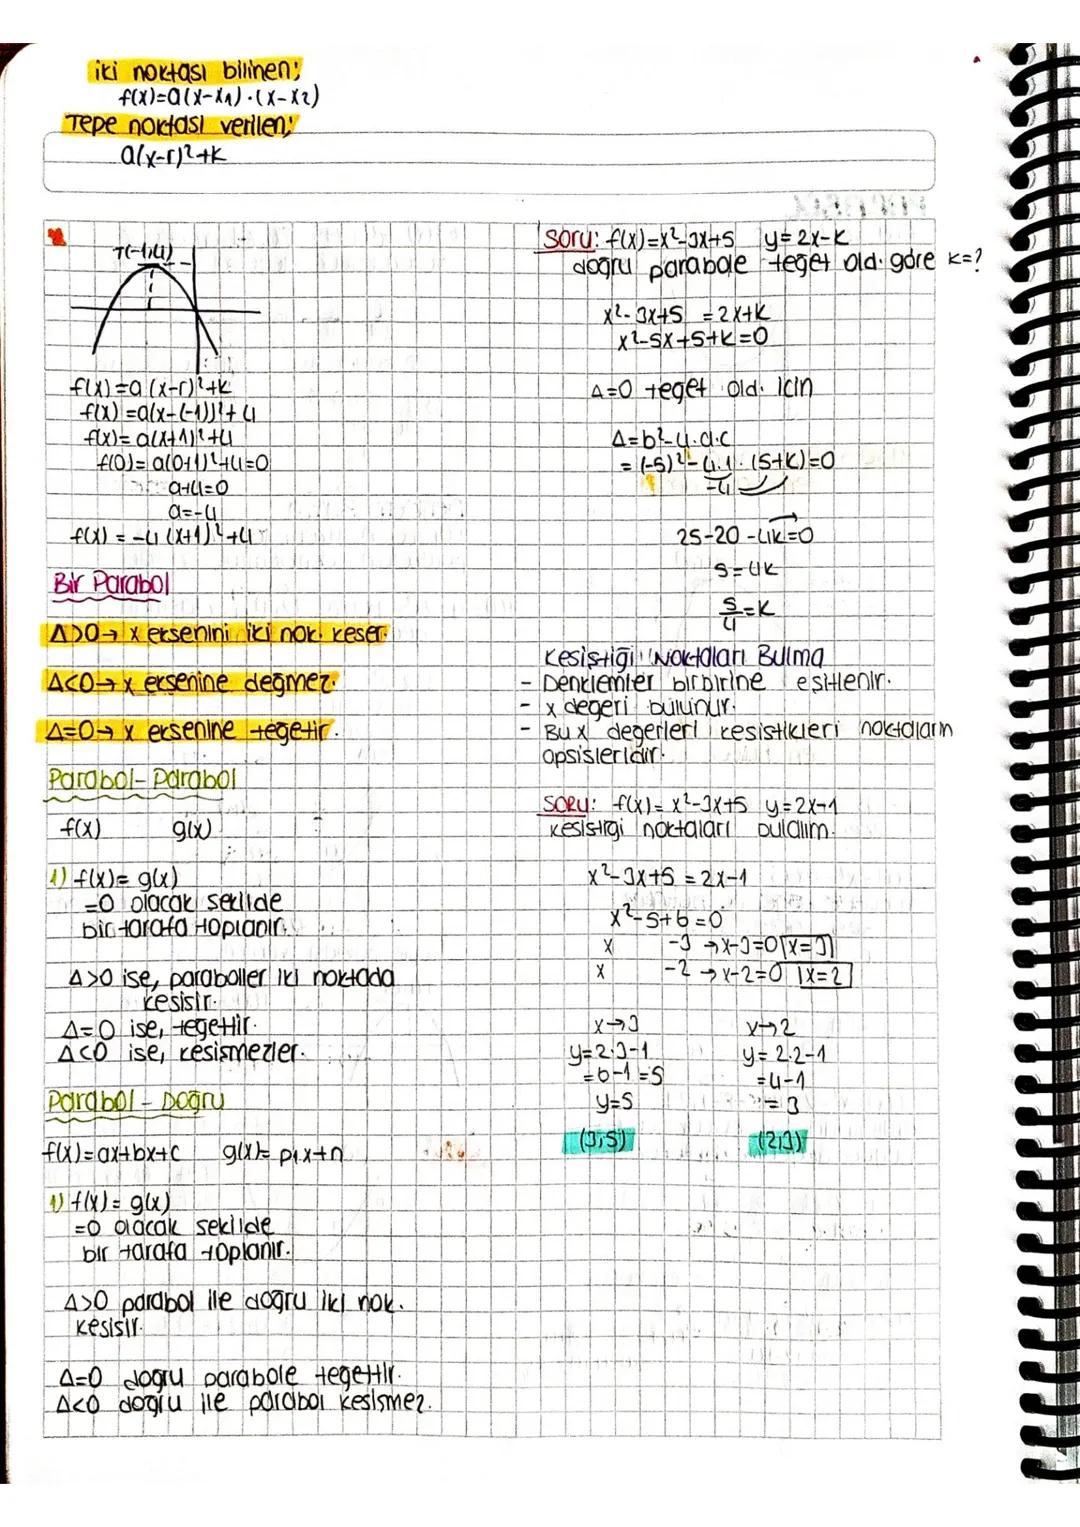 iki noktası bilinen;
f(x)=a(x-x1).(x-x2)
Tepe noktası verilen;
a(x-r)²+k
T(-1,4)
f(x)=a(x-r)²+k
f(x)=a(x-(-1))²+4
f(x)=a(x+1)²+4
f(0)=a(0+1)²+4=0
a+4=0
a=-4
f(x) = -4(x+1)²+4
Bir Parabol
Δ>0→ x eksenini iki nok. keser.
Δ<0→ x eksenine değmez.
Δ=0→ x eksenine teğetir.
Parabol-Parabol
f(x) g(x)
1) f(x)= g(x)
=0 olacak şekilde
bir tarafa toplanır.
Δ>0 ise, paraboller iki noktada
kesişir.
Δ=0 ise, teğettir.
Δ<0 ise, kesişmezler.
Parabol - Doğru
f(x)=ax+bx+c g(x)=
1) f(x)= g(x)
=0 olacak şekilde
bir tarafa toplanır.
Δ>0 parabol ile doğru iki nok.
kesişir.
Δ=0 doğru parabole teğettir.
Δ<0 doğru ile parabol kesişmez.
Soru: f(x)=x²-3x+5 y=2x-k
doğru parabole teğet old. göre k=?
x²-3x+5 =2x+k
x²-5x+5+k=0
Δ=0 teğet old. için
Δ=b²-4.a.c
= (-5)²-4.1.(5+k)=0
-4
25-20-4k=0
5=4k
5/4=k
Kesiştiği Noktaları Bulma
- Denklemler birbirine eşitlenir.
- x değeri bulunur.
- Bu x değerleri kesiştikleri noktaların
opsisleridir.
SORU: f(x)= x²-3x+5 y=2x-1
kesiştiği noktaları bulalım.
x²-3x+5 =2x-1
x²-5+6=0
x -3 →x-3=0 x=3
x -2 →x-2=0 x=2
x→3 x→2
y=2.3-1 y= 2.2-1
=6-1=5 =4-1
y=5 = 3
(3,5) (2,3)